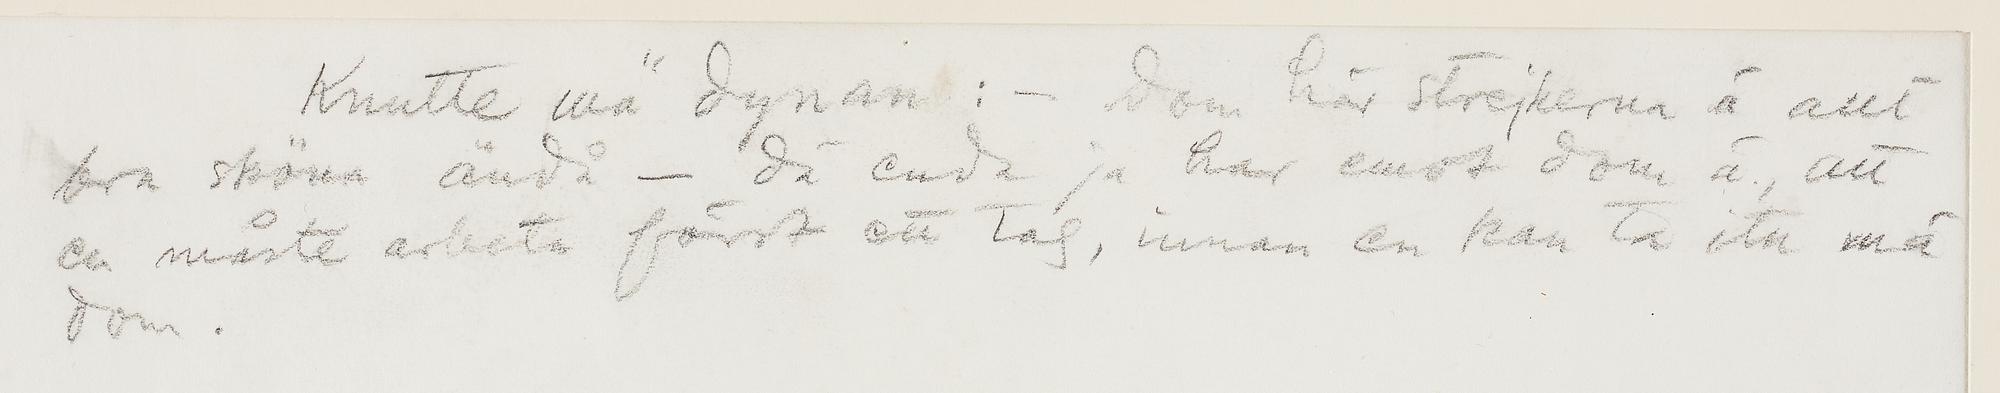 Knutte mä dynan : — Dom här strejkerna ä allt
bra sköna ändå — dä enda ja har emot dom ä, att
en måste arbeta förrst ett tag, innan en kan ta itu mä
dom.